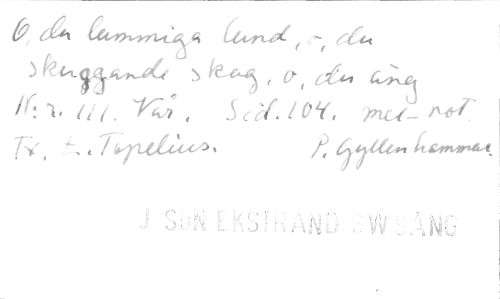 O, du lummiga lund, o, du
skuggande skog, o, du äng
N:r. 111. Vår. Sid. 104. mel-not.
Tx. Z. Topelius. P. Gyllenhammar.
J SON EKSTRAND SW SÅNG